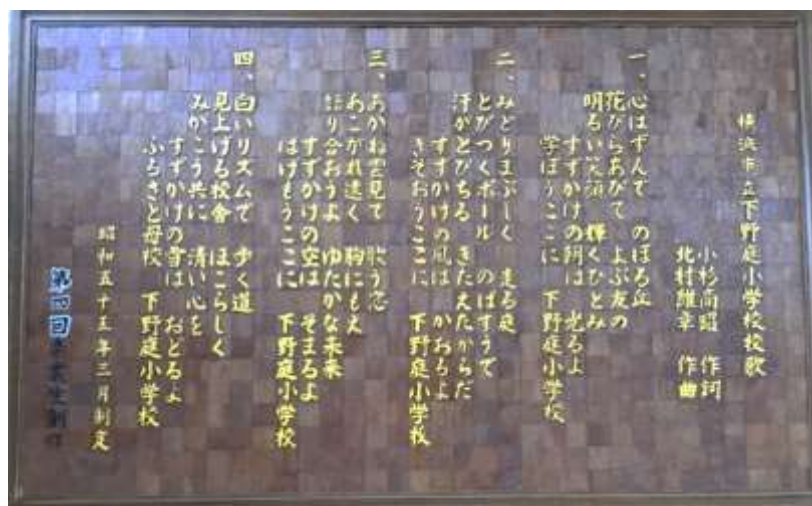 横浜市立下野庭小学校校歌
小杉尚昭 作詞
北村維章 作曲
一、心はずんで のぼる丘
花びらあびて よぶ友の
明るい笑顔 輝くひとみ
すずかけの朝は 光るよ
学ぼうここに 下野庭小学校
二、みどりまぶしく 走る庭
とびつくボール のばすうで
汗がとびちる きたえたからだ
すずかけの風は かおるよ
きそおうここに 下野庭小学校
三、あかね雲見て 歌う窓
あこがれ遠く 胸にもえ
語り合おうよ ゆたかな未来
すずかけの空は そまるよ
はげもうここに 下野庭小学校
四、白いリズムで 歩く道
見上げる校舎 ほこらしく
みがこう共に 清い心を
すずかけの音は おどるよ
ふるさと母校 下野庭小学校
昭和五十五年三月制定
第四回卒業生制作